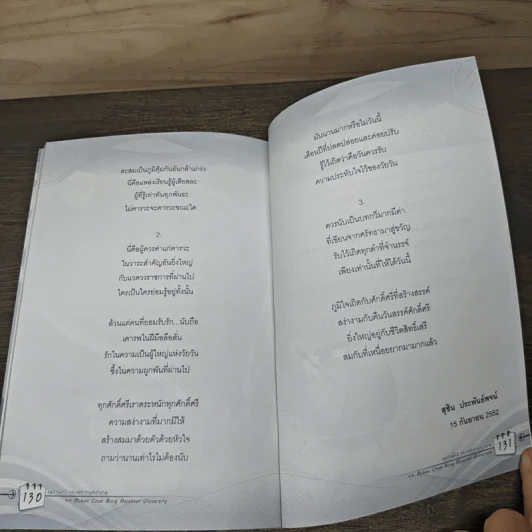 สะสมเป็นภูมิคุ้มกันอันกล้าแกร่ง
นี่คือแหล่งเรียนรู้ผู้เสียสละ
ผู้ที่รู้เท่าทันทุกพันธะ
ไม่คารวะจะคารวะขณะใด
2.
นี่คือผู้ควรค่าแก่คารวะ
ในวาระสำคัญอันยิ่งใหญ่
กับแวดวงราชการที่ผ่านไป
ใครเป็นใครย่อมรู้อยู่ทั้งนั้น
ล้วนแต่คนที่ยอมรับรัก...นับถือ
เคารพในฝีมือลือลั่น
รักในความเป็นผู้ใหญ่แห่งวัยวัน
ซึ้งในความผูกพันที่ผ่านไป
ทุกศักดิ์ศรีเราตระหนักทุกศักดิ์ศรี
ความสง่างามที่มากมีให้
สร้างสมมาด้วยตัวด้วยหัวใจ
ถามว่านานเท่าไรไม่ต้องนับ
130
Muban Chom Bung Rajabhat University
มันนานมากหรือไม่วันนี้
เดือนปีที่ปลดปล่อยและค่อยปรับ
รู้ไว้เถิดว่าคือวันควรรับ
ความประทับใจไว้ของวัยวัน
3.
ควรนับเป็นบทกวีมากมีค่า
ที่เขียนจากศรัทธามาสู่ขวัญ
รับไว้เถิดทุกคำที่จำนรรจ์
เพียงเท่านั้นที่ให้ได้วันนี้
ภูมิใจเถิดกับศักดิ์ศรีที่สร้างสรรค์
สง่างามกับคืนวันสรรค์ศักดิ์ศรี
ยิ่งใหญ่อยู่กับชีวิตสิทธิ์เสรี
สมกับที่เหนื่อยยากมามากแล้ว
สุชิน ประพันธ์พจน์
15 กันยายน 2552
131
Muban Chom Bung Rajabhat University